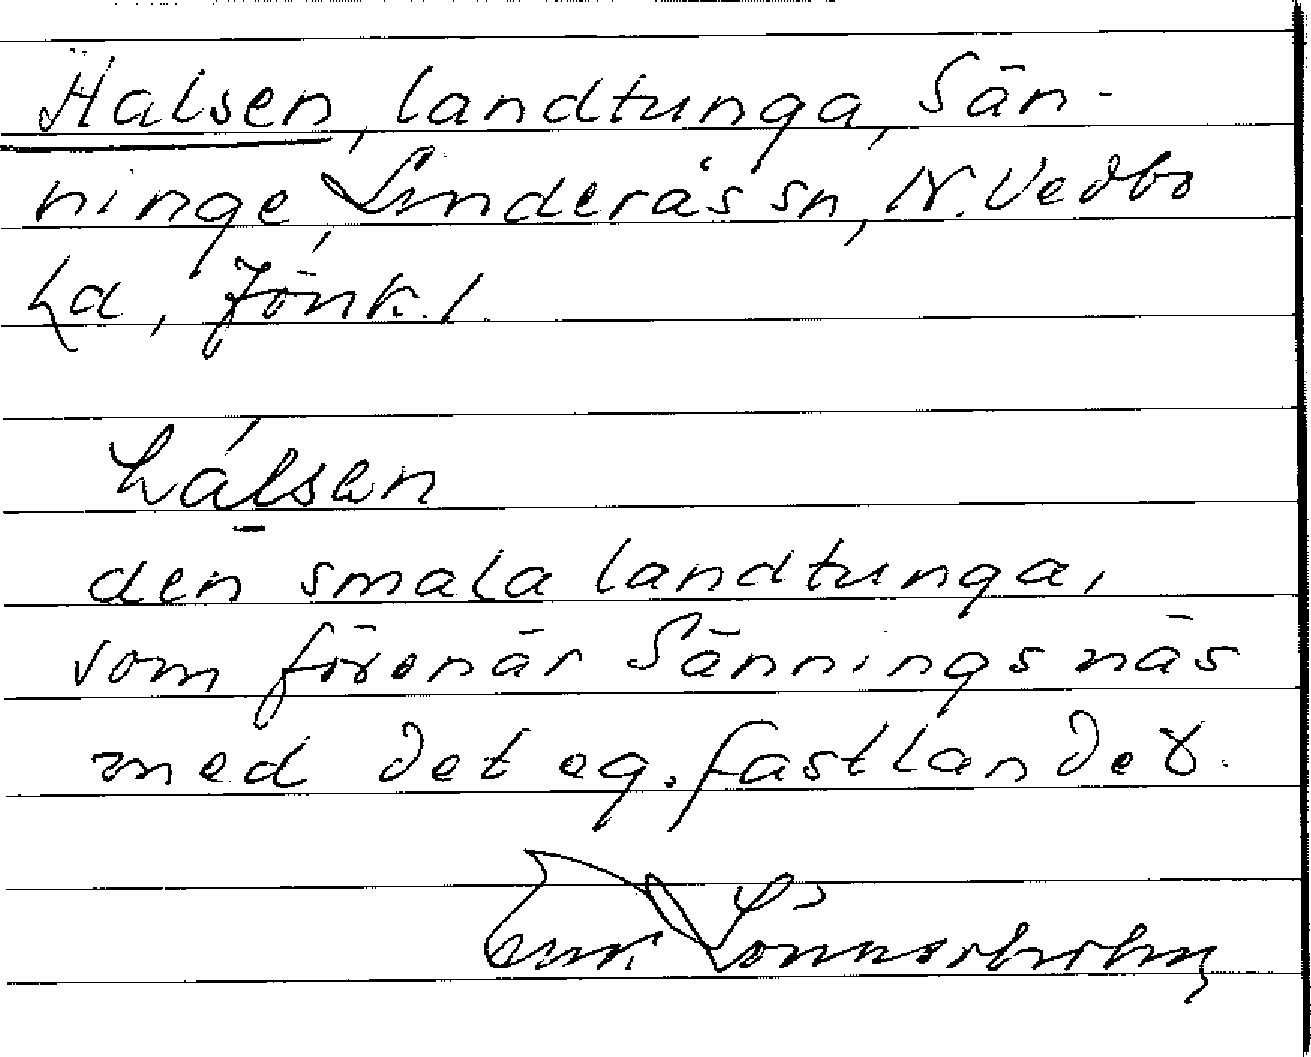 Halsen, landtunga, Sän-
ninge, Linderås sn, N. Vedbo
hd, Jönk. l.
hálsen
den smala landtunga,
som förenar Sännings näs
med det eg. fastlandet.